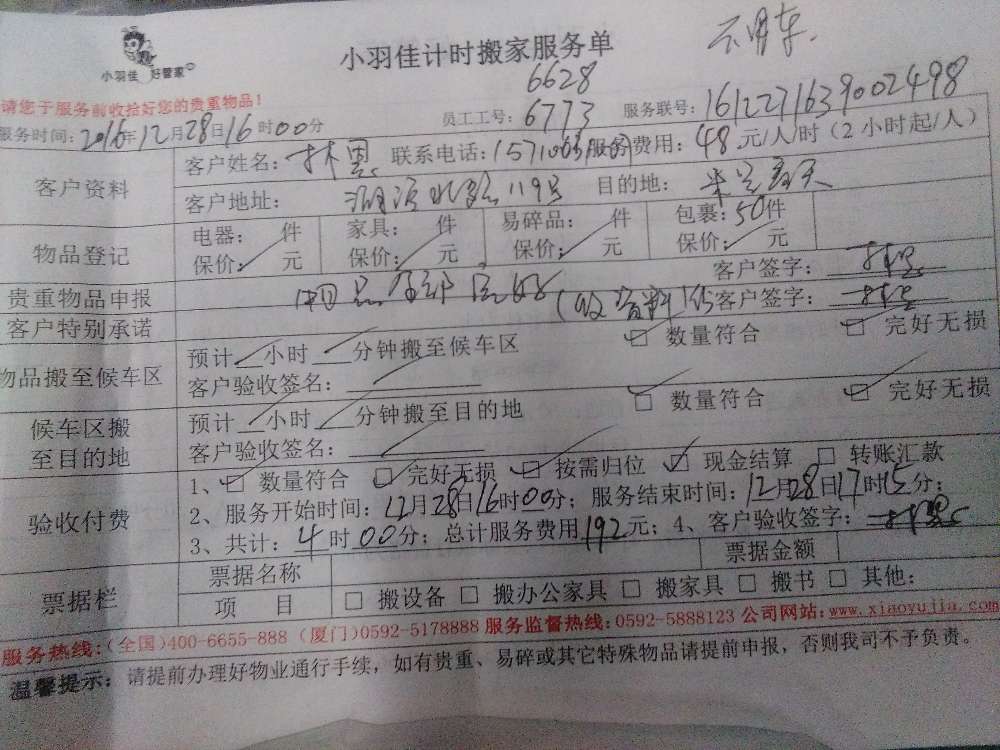 不用车.
小羽佳 好管家
小羽佳计时搬家服务单
请您于服务前收拾好您的贵重物品！
6628
员工工号：6773 服务联号：1612271639002498
服务时间：2016年12月28日16时00分
客户资料 客户姓名：林 联系电话： 服务费用：48元/人/时（2小时起/人）
客户地址：湖滨北路119号 目的地：
物品登记 电器： 件 家具： 件 易碎品： 件 包裹：50件
保价： 元 保价： 元 保价： 元 保价： 元
贵重物品申报 客户签字：
客户特别承诺 客户签字：
物品搬至候车区 预计 小时 分钟搬至候车区 □ 数量符合 □ 完好无损
客户验收签名：
候车区搬至目的地 预计 小时 分钟搬至目的地 □ 数量符合 □ 完好无损
客户验收签名：
验收付费 1、□ 数量符合 □ 完好无损 □ 按需归位 □ 现金结算 □ 转账汇款
2、服务开始时间：12月28日16时00分；服务结束时间：12月28日17时15分；
3、共计：4时00分；总计服务费用192元；4、客户验收签字：
票据栏 票据名称 票据金额
项 目 □ 搬设备 □ 搬办公家具 □ 搬家具 □ 搬书 □ 其他：
服务热线：(全国)400-6655-888 (厦门)0592-5178888 服务监督热线：0592-5888123 公司网站：www.xiaoyujia.com
温馨提示：请提前办理好物业通行手续，如有贵重、易碎或其它特殊物品请提前申报，否则我司不予负责。